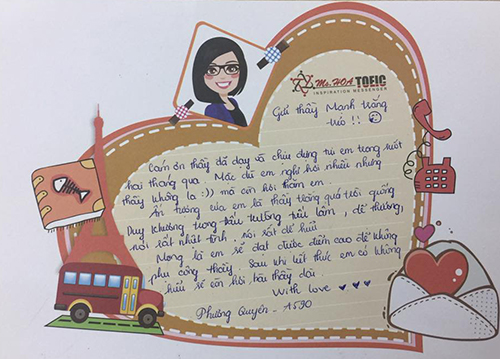 Ms.HOA TOEIC
INSPIRATION MESSENGER
Gửi thầy Mạnh trắng
trẻo !!
Cảm ơn thầy đã dạy và chịu đựng tụi em trong suốt
hai tháng qua. Mặc dù em nghỉ hơi nhiều nhưng
thầy không la :)) mà còn hỏi thăm em.
Ấn tượng của em là thầy trắng quá trời giống
Duy Khương trong Đấu trường tiếu lâm, dễ thương,
nói rất nhiệt tình, nói rất dễ hiểu
Mong là em sẽ đạt được điểm cao để không
phụ công thầy. Sau khi kết thúc em có không
hiểu sẽ còn hỏi bài thầy dài.
With love
Phương Quyên - A590